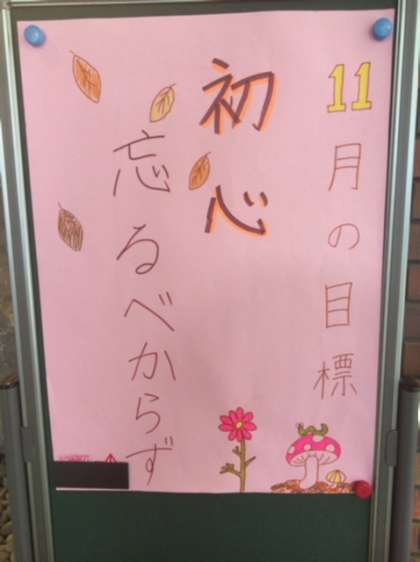 11月の目標
初心
忘るべからず